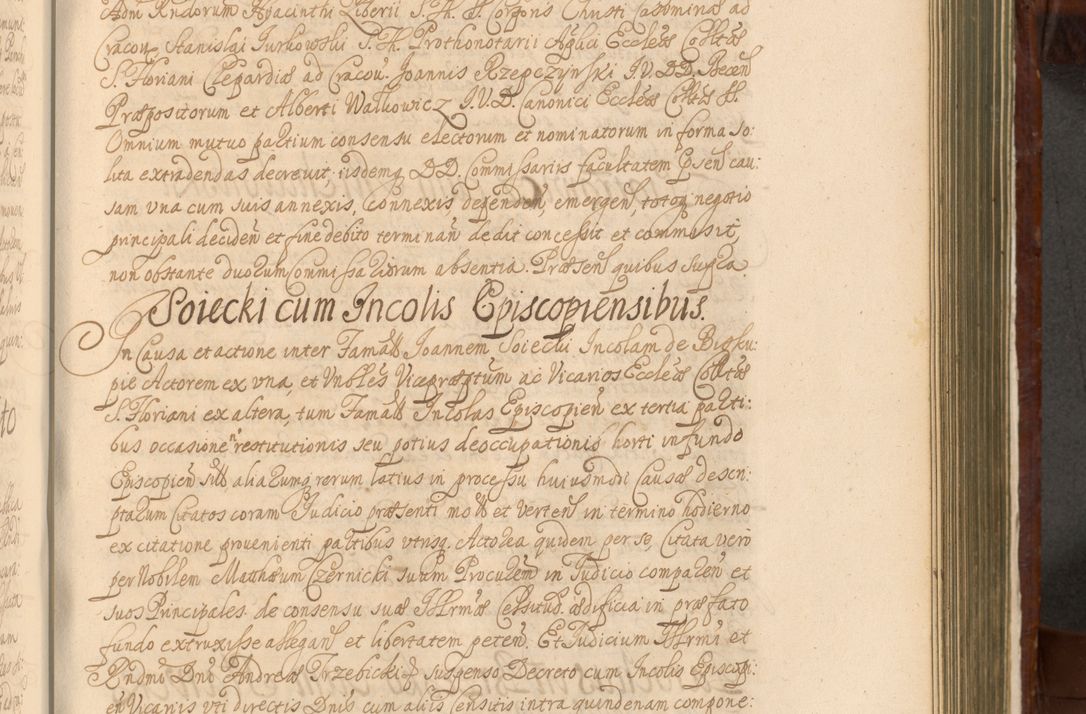 Adm Rndorum Hyacinthi Liberii S. Th. D. Corporis Christi Casimiriae ad
Cracou Stanislai Jurkowski S. Th. Prothonotarii Aplici Eccleae Colltae
S. Floriani Clepardiae ad Cracou. Joannis Rzepczynski I.V.D.D. Becen
Praepositorum et Alberti Walkowicz J.V.D. Canonici Eccleae Colltae St.
Omnium mutuo partium consensu electorum et nominatorum in forma so:
lita extradendas decrevit iisdemq DD. Commissariis facultatem Ipsen cau:
sam una cum suis annexis, connexis, dependen, emergen, totoq negotio
principali deciden et fine debito terminan dedit concessit et commisit,
non obstante duorum Commissariorum absentia. Praesen quibus supra.
Soiecki cum Incolis Episcopiensibus.
In Causa et actione inter Famatt Joannem Soiecki Incolam de Bisku:
pie Actorem ex una, et Vnbles Vicepraeptum ac Vicarios Eccleae Colltae
S. Floriani ex altera, tum Famatt Incolas Episcopien ex tertia parti:
bus occasione restitutionis seu potius deoccupationis horti in fundo
Episcopien aliarumq rerum latius in processu huiusmodi Causae descri:
ptarum Citatos coram Judicio praesenti mott et verten in termino hodierno
ex citatione provenienti partibus utrisq. Actorea quidem per se, Citata vero
per Nobilem Matthaeum Czernicki suum Procurem in Judicio comparen et
suos Principales de consensu suae Illrmae Celsitud. aedificia in praefato
fundo extruxisse allegan et libertatem peten. Et Judicium Illrmi et
Rndmi Dni Andreae Trzebicki suspenso Decreto cum Incolis Episcopi:
en Vicariis uti directis Dnis cum aliis Censitis intra quindenam compone: